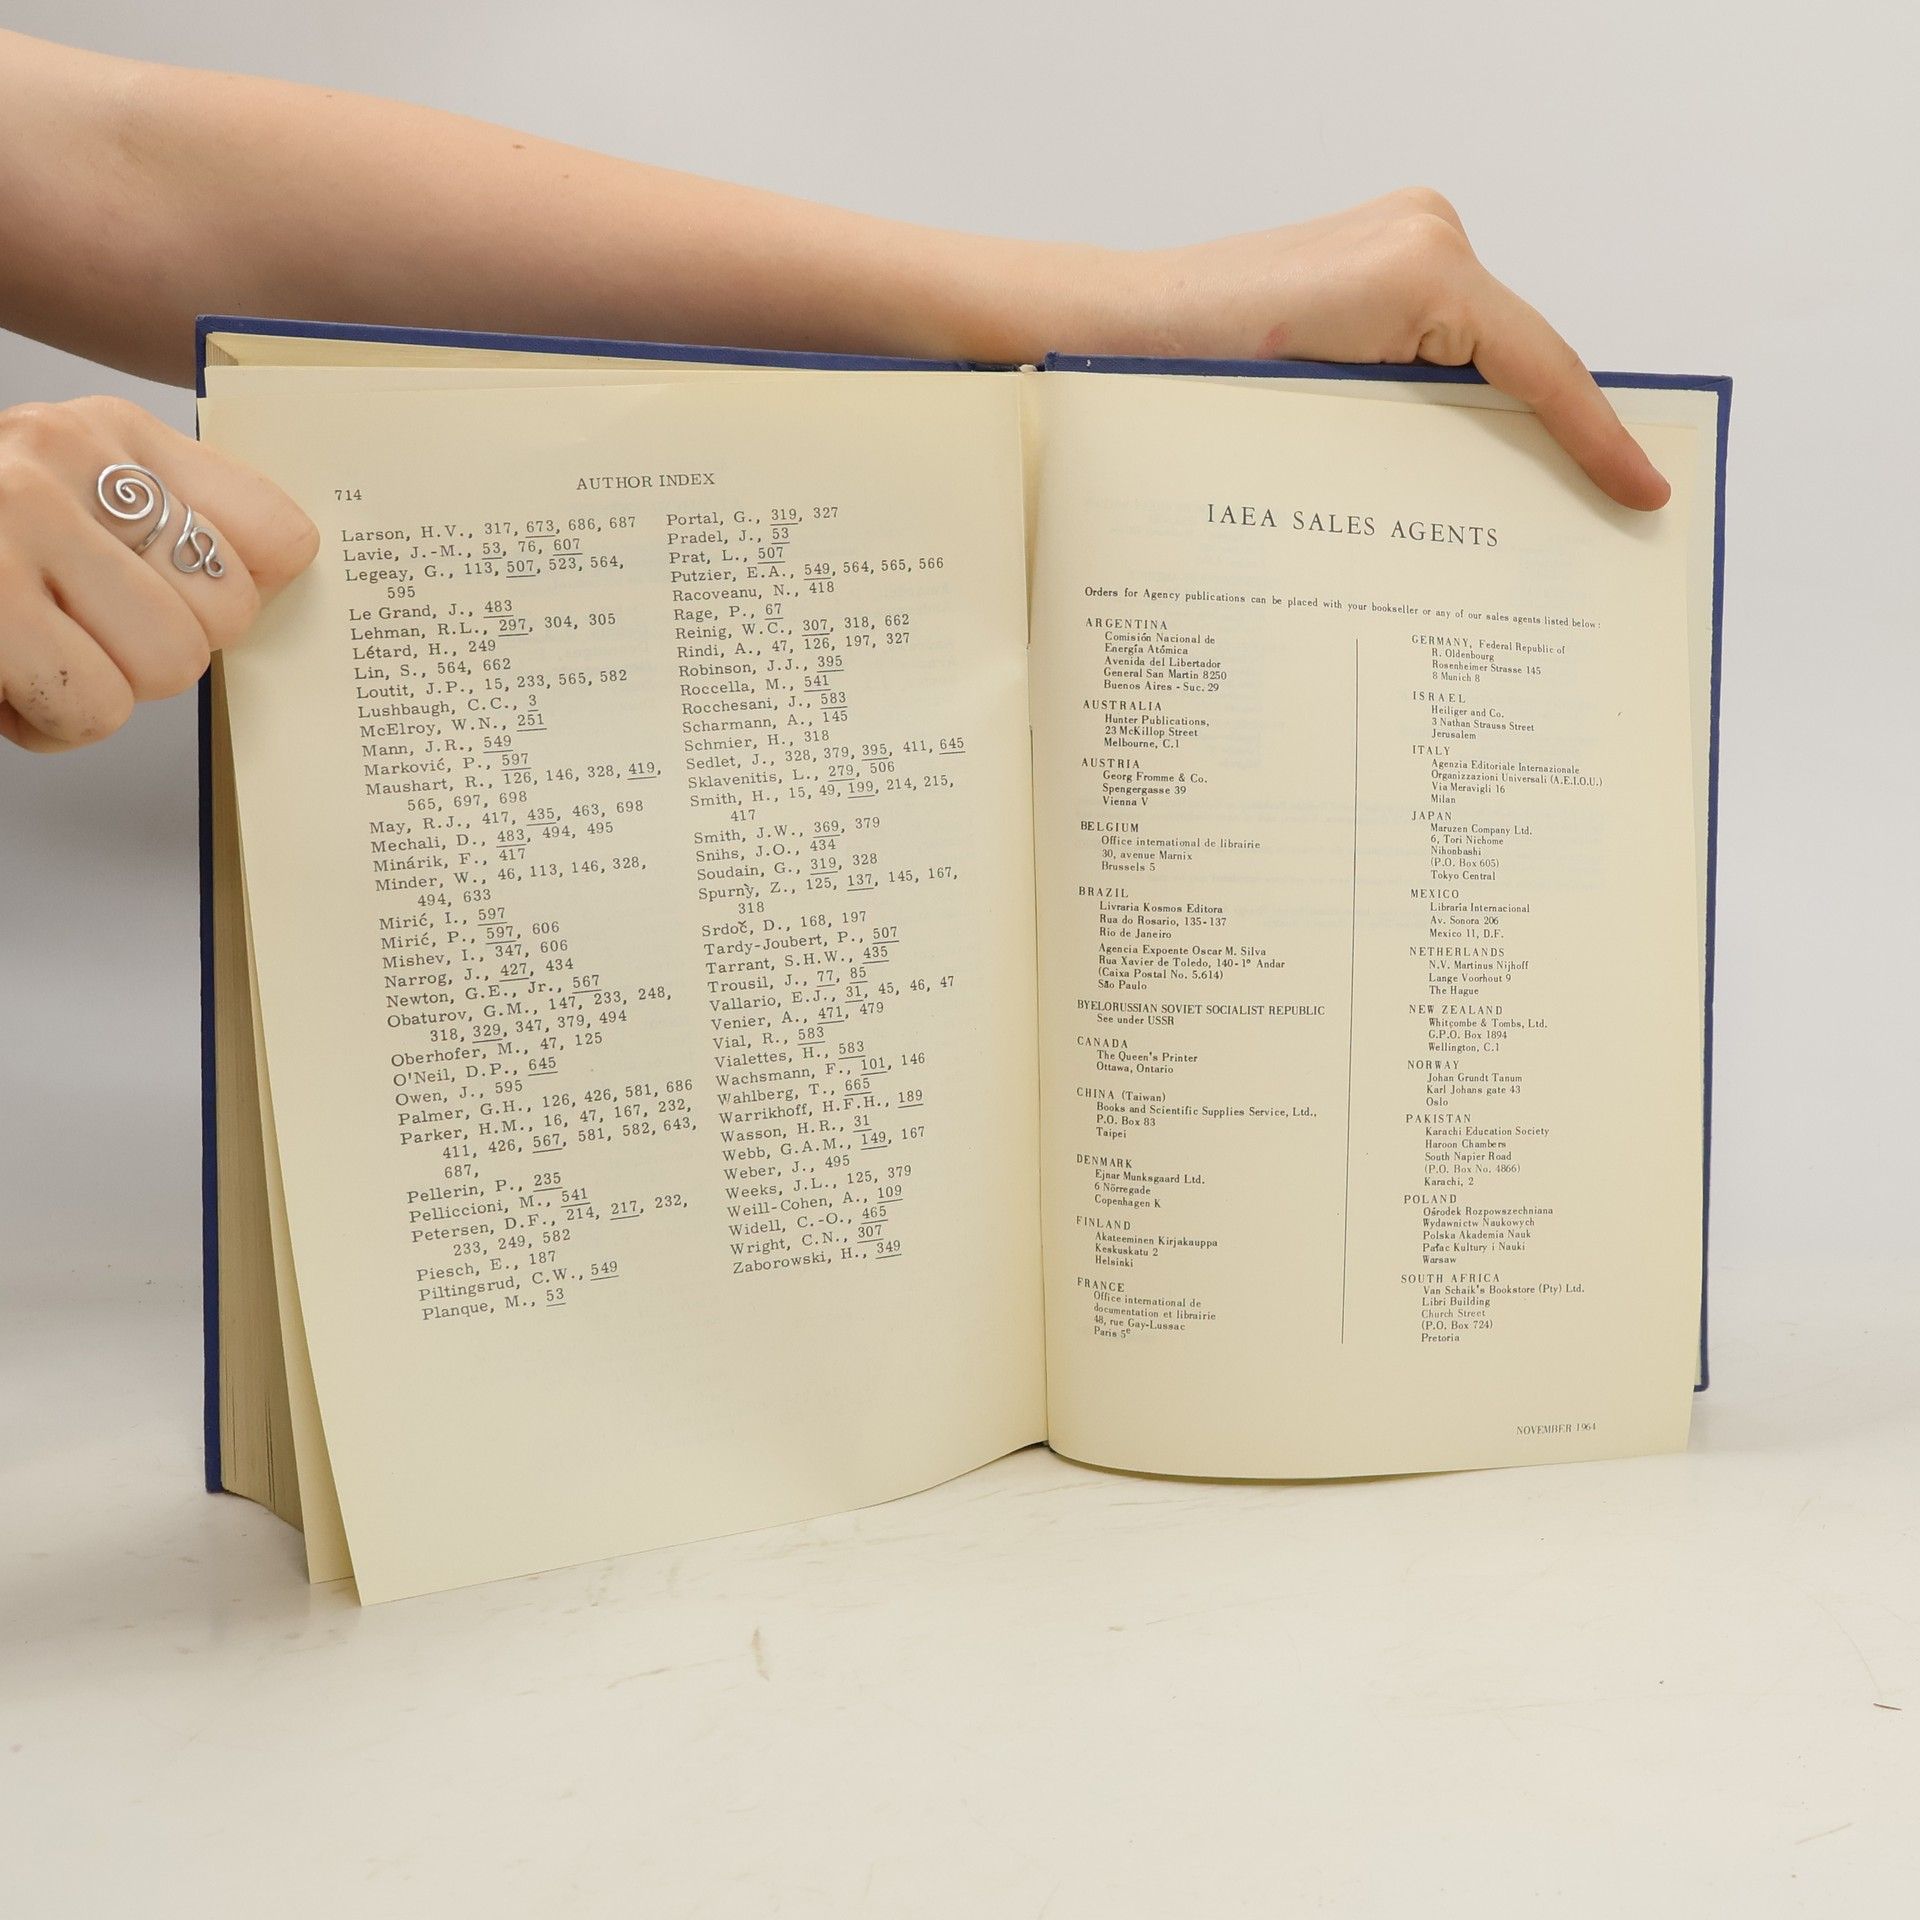 714
AUTHOR INDEX
Larson, H.V., 317, 673, 686, 687
Lavie, J.-M., 53, 76, 607
Legeay, G., 113, 507, 523, 564,
595
Le Grand, J., 483
Lehman, R.L., 297, 304, 305
Létard, H., 249
Lin, S., 564, 662
Loutit, J.P., 15, 233, 565, 582
Lushbaugh, C.C., 3
McElroy, W.N., 251
Mann, J.R., 549
Marković, P., 597
Maushart, R., 126, 146, 328, 419,
565, 697, 698
May, R.J., 417, 435, 463, 698
Mechali, D., 483, 494, 495
Minárik, F., 417
Minder, W., 46, 113, 146, 328,
494, 633
Mirić, I., 597
Mirić, P., 597, 606
Mishev, I., 347, 606
Narrog, J., 427, 434
Newton, G.E., Jr., 567
Obaturov, G.M., 147, 233, 248,
318, 329, 347, 379, 494
Oberhofer, M., 47, 125
O'Neil, D.P., 645
Owen, J., 595
Palmer, G.H., 126, 426, 581, 686
Parker, H.M., 16, 47, 167, 232,
411, 426, 567, 581, 582, 643,
687,
Pellerin, P., 235
Pelliccioni, M., 541
Petersen, D.F., 214, 217, 232,
233, 249, 582
Piesch, E., 187
Piltingsrud, C.W., 549
Planque, M., 53
Portal, G., 319, 327
Pradel, J., 53
Prat, L., 507
Putzier, E.A., 549, 564, 565, 566
Racoveanu, N., 418
Rage, P., 67
Reinig, W.C., 307, 318, 662
Rindi, A., 47, 126, 197, 327
Robinson, J.J., 395
Roccella, M., 541
Rocchesani, J., 583
Scharmann, A., 145
Schmier, H., 318
Sedlet, J., 328, 379, 395, 411, 645
Sklavenitis, L., 279, 506
Smith, H., 15, 49, 199, 214, 215,
417
Smith, J.W., 369, 379
Snihs, J.O., 434
Soudain, G., 319, 328
Spurný, Z., 125, 137, 145, 167,
318
Srdoč, D., 168, 197
Tardy-Joubert, P., 507
Tarrant, S.H.W., 435
Trousil, J., 77, 85
Vallario, E.J., 31, 45, 46, 47
Venier, A., 471, 479
Vial, R., 583
Vialettes, H., 583
Wachsmann, F., 101, 146
Wahlberg, T., 665
Warrikhoff, H.F.H., 189
Wasson, H.R., 31
Webb, G.A.M., 149, 167
Weber, J., 495
Weeks, J.L., 125, 379
Weill-Cohen, A., 109
Widell, C.-O., 465
Wright, C.N., 307
Zaborowski, H., 349
IAEA SALES AGENTS
Orders for Agency publications can be placed with your bookseller or any of our sales agents listed below:
ARGENTINA
Comisión Nacional de
Energía Atómica
Avenida del Libertador
General San Martin 8250
Buenos Aires - Suc. 29
AUSTRALIA
Hunter Publications,
23 McKillop Street
Melbourne, C.1
AUSTRIA
Georg Fromme & Co.
Spengergasse 39
Vienna V
BELGIUM
Office international de librairie
30, avenue Marnix
Brussels 5
BRAZIL
Livraria Kosmos Editora
Rua do Rosario, 135-137
Rio de Janeiro
Agencia Expoente Oscar M. Silva
Rua Xavier de Toledo, 140-1º Andar
(Caixa Postal No. 5.614)
São Paulo
BYELORUSSIAN SOVIET SOCIALIST REPUBLIC
See under USSR
CANADA
The Queen's Printer
Ottawa, Ontario
CHINA (Taiwan)
Books and Scientific Supplies Service, Ltd.,
P.O. Box 83
Taipei
DENMARK
Ejnar Munksgaard Ltd.
6 Nörregade
Copenhagen K
FINLAND
Akateeminen Kirjakauppa
Keskuskatu 2
Helsinki
FRANCE
Office international de
documentation et librairie
48, rue Gay-Lussac
Paris 5e
GERMANY, Federal Republic of
R. Oldenbourg
Rosenheimer Strasse 145
8 Munich 8
ISRAEL
Heiliger and Co.
3 Nathan Strauss Street
Jerusalem
ITALY
Agenzia Editoriale Internazionale
Organizzazioni Universali (A.E.I.O.U.)
Via Meravigli 16
Milan
JAPAN
Maruzen Company Ltd.
6, Tori Nichome
Nihonbashi
(P.O. Box 605)
Tokyo Central
MEXICO
Libraria Internacional
Av. Sonora 206
Mexico 11, D.F.
NETHERLANDS
N.V. Martinus Nijhoff
Lange Voorhout 9
The Hague
NEW ZEALAND
Whitcombe & Tombs, Ltd.
G.P.O. Box 1894
Wellington, C.1
NORWAY
Johan Grundt Tanum
Karl Johans gate 43
Oslo
PAKISTAN
Karachi Education Society
Haroon Chambers
South Napier Road
(P.O. Box No. 4866)
Karachi, 2
POLAND
Ośrodek Rozpowszechniana
Wydawnictw Naukowych
Polska Akademia Nauk
Pałac Kultury i Nauki
Warsaw
SOUTH AFRICA
Van Schaik's Bookstore (Pty) Ltd.
Libri Building
Church Street
(P.O. Box 724)
Pretoria
NOVEMBER 1964